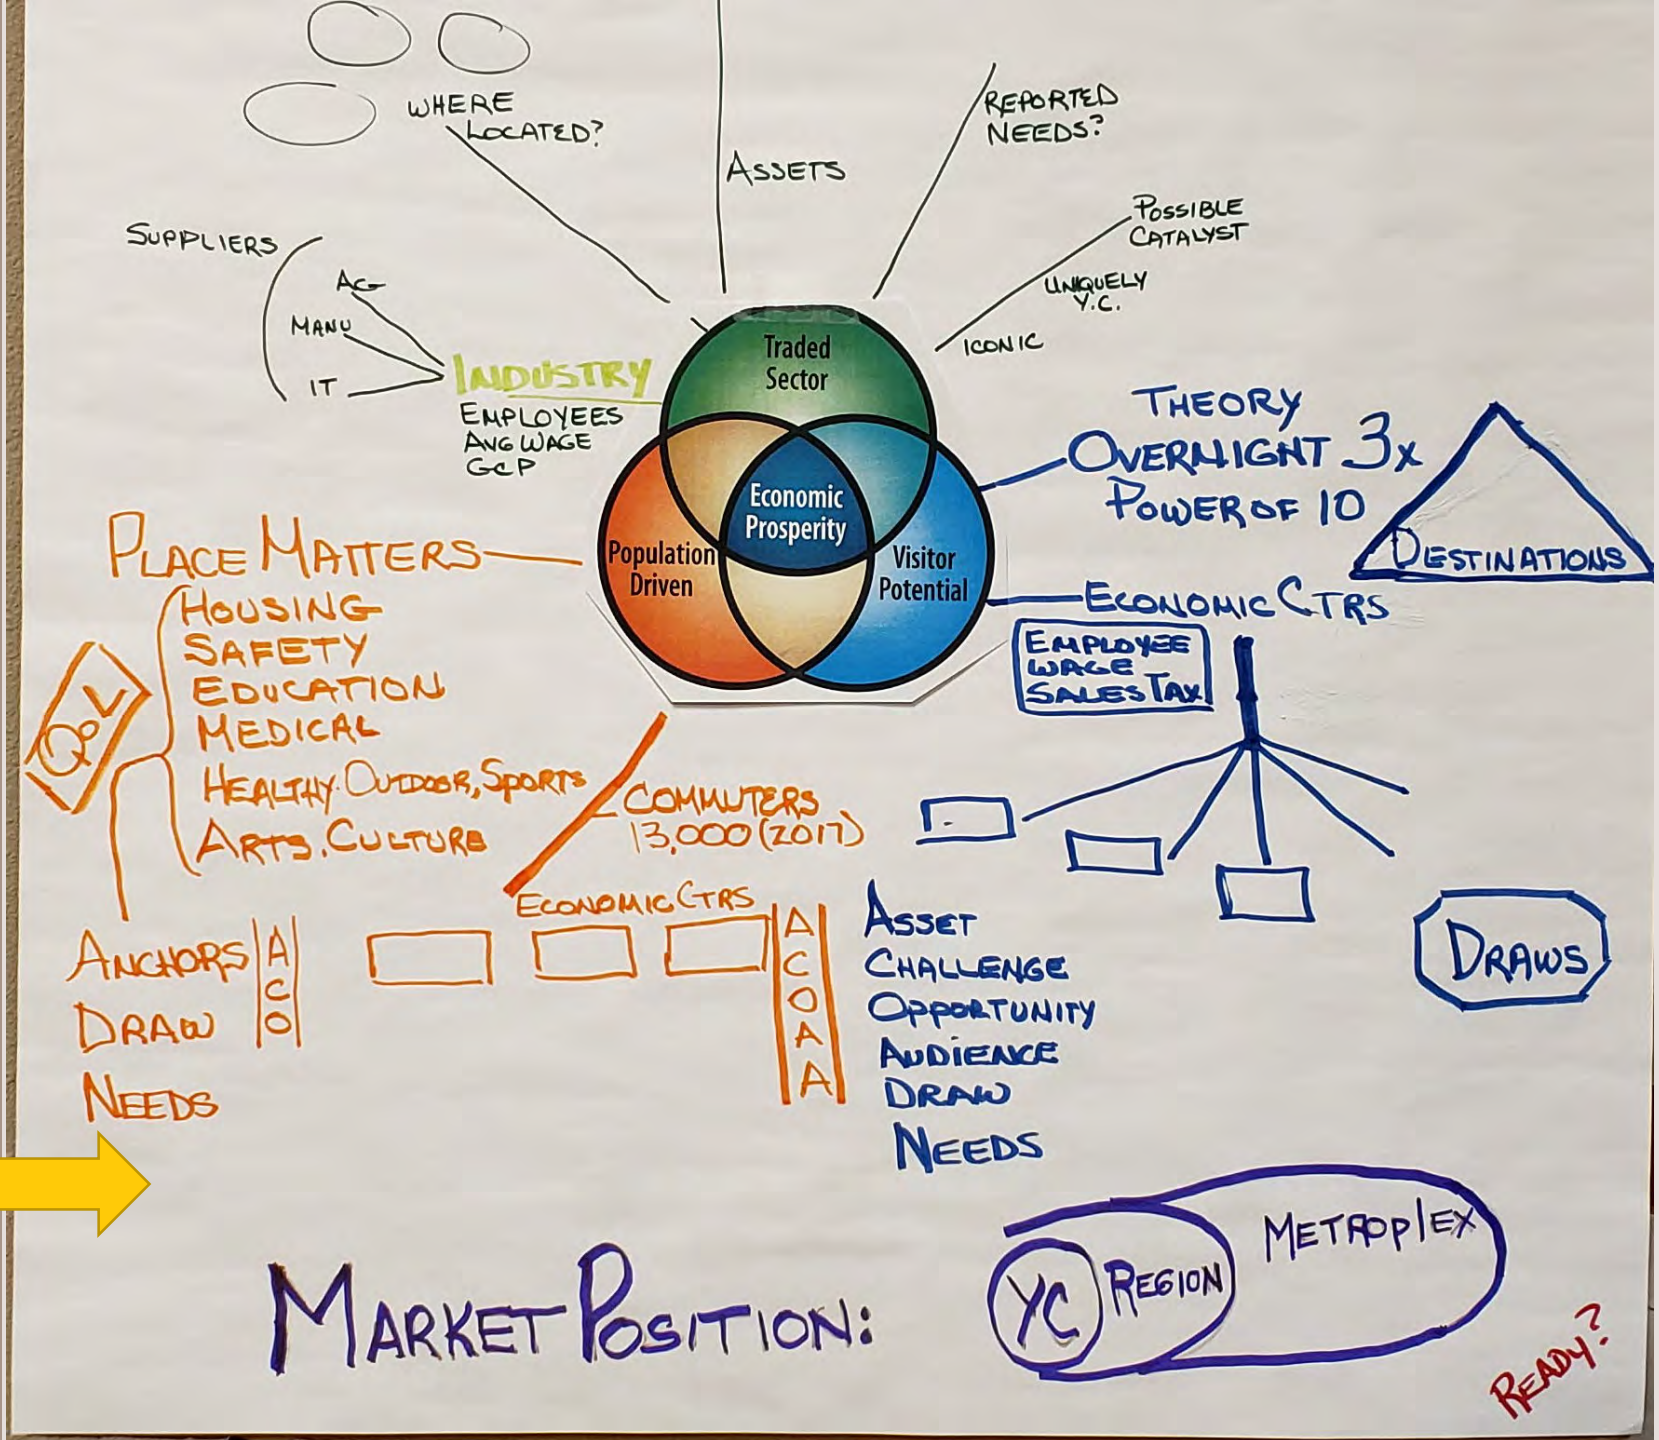 WHERE
LOCATED?
ASSETS
REPORTED
NEEDS?
POSSIBLE
CATALYST
UNIQUELY
Y.C.
ICONIC
SUPPLIERS
AG
MANU
IT
INDUSTRY
EMPLOYEES
AVG WAGE
GCP
Traded
Sector
Economic
Prosperity
Population
Driven
Visitor
Potential
THEORY
OVERNIGHT 3x
POWER OF 10
DESTINATIONS
ECONOMIC CTRS
EMPLOYEE
WAGE
SALES TAX
PLACE MATTERS
HOUSING
SAFETY
EDUCATION
MEDICAL
HEALTHY. OUTDOOR, SPORTS
ARTS, CULTURE
QoL
COMMUTERS
13,000 (2017)
ECONOMIC CTRS
ANCHORS
DRAW
NEEDS
A
C
O
A
C
O
A
A
ASSET
CHALLENGE
OPPORTUNITY
AUDIENCE
DRAW
NEEDS
DRAWS
MARKET POSITION:
YC
REGION
METROPlEX
READY?